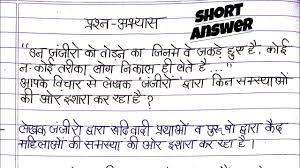 SHORT
ANSWER
प्रश्न-अभ्यास
"उन जंजीरों को तोड़ने का जिनमें वे जकड़े हुए हैं, कोई
न-कोई तरीका लोग निकाल ही लेते हैं..."
आपके विचार से लेखक 'जंजीरों' द्वारा किन समस्याओं
की ओर इशारा कर रहा है ?
लेखक जंजीरों द्वारा रूढ़िवादी प्रथाओं व पुरुषों द्वारा कैद
महिलाओं की समस्या की ओर इशारा कर रहा है।